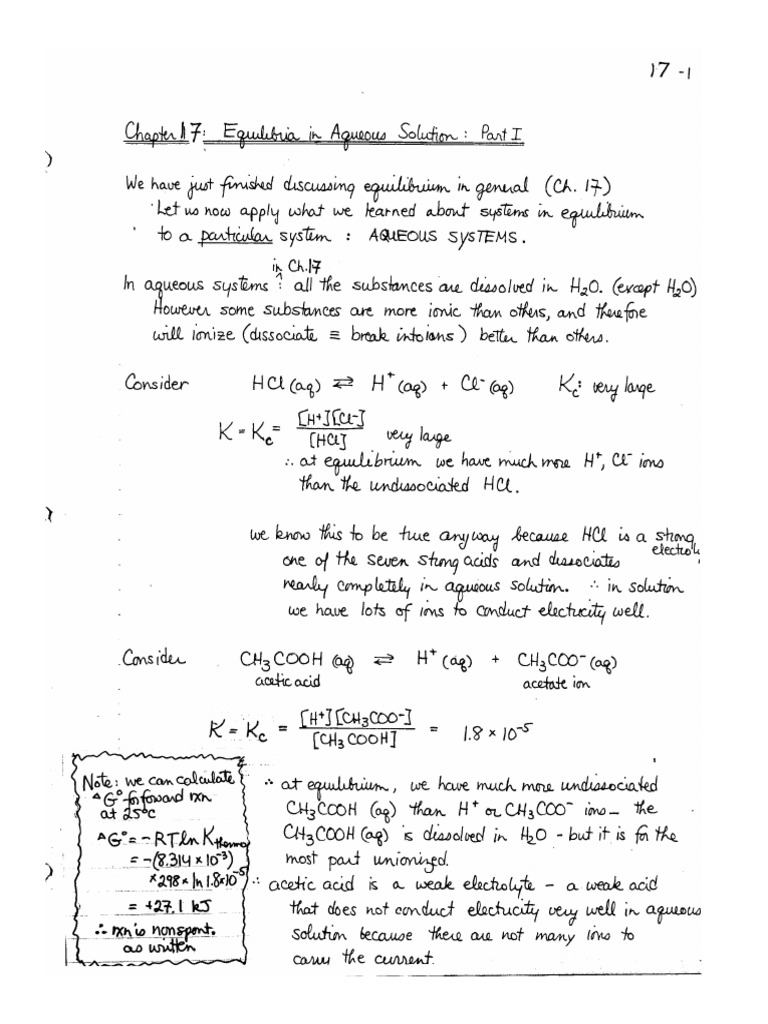 17 -1
Chapter 17: Equilibria in Aqueous Solution: Part I
We have just finished discussing equilibrium in general (Ch. 17)
Let us now apply what we learned about systems in equilibrium
to a particular system : AQUEOUS SYSTEMS.
in Ch.17
In aqueous systems : all the substances are dissolved in H₂O. (except H₂O)
However some substances are more ionic than others, and therefore
will ionize (dissociate ≡ break into ions) better than others.
Consider HCl (aq) ⇄ H⁺(aq) + Cl⁻(aq) Kc: very large
K = Kc = [H⁺][Cl⁻] / [HCl] very large
∴ at equilibrium we have much more H⁺, Cl⁻ ions
than the undissociated HCl.
we know this to be true anyway because HCl is a strong
electroly
one of the seven strong acids and dissociates
nearly completely in aqueous solution. ∴ in solution
we have lots of ions to conduct electricity well.
Consider CH₃COOH (aq) ⇄ H⁺(aq) + CH₃COO⁻(aq)
acetic acid acetate ion
K = Kc = [H⁺][CH₃COO⁻] / [CH₃COOH] = 1.8 × 10⁻⁵
Note: we can calculate
ΔG° for forward rxn
at 25°C
ΔG° = -RT ln Kthermo
= -(8.314 × 10⁻³)
× 298 × ln 1.8×10⁻⁵
= +27.1 kJ
∴ rxn is nonspont.
as written
∴ at equilibrium, we have much more undissociated
CH₃COOH (aq) than H⁺ or CH₃COO⁻ ions – the
CH₃COOH (aq) is dissolved in H₂O - but it is for the
most part unionized.
∴ acetic acid is a weak electrolyte – a weak acid
that does not conduct electricity very well in aqueous
solution because there are not many ions to
carry the current.